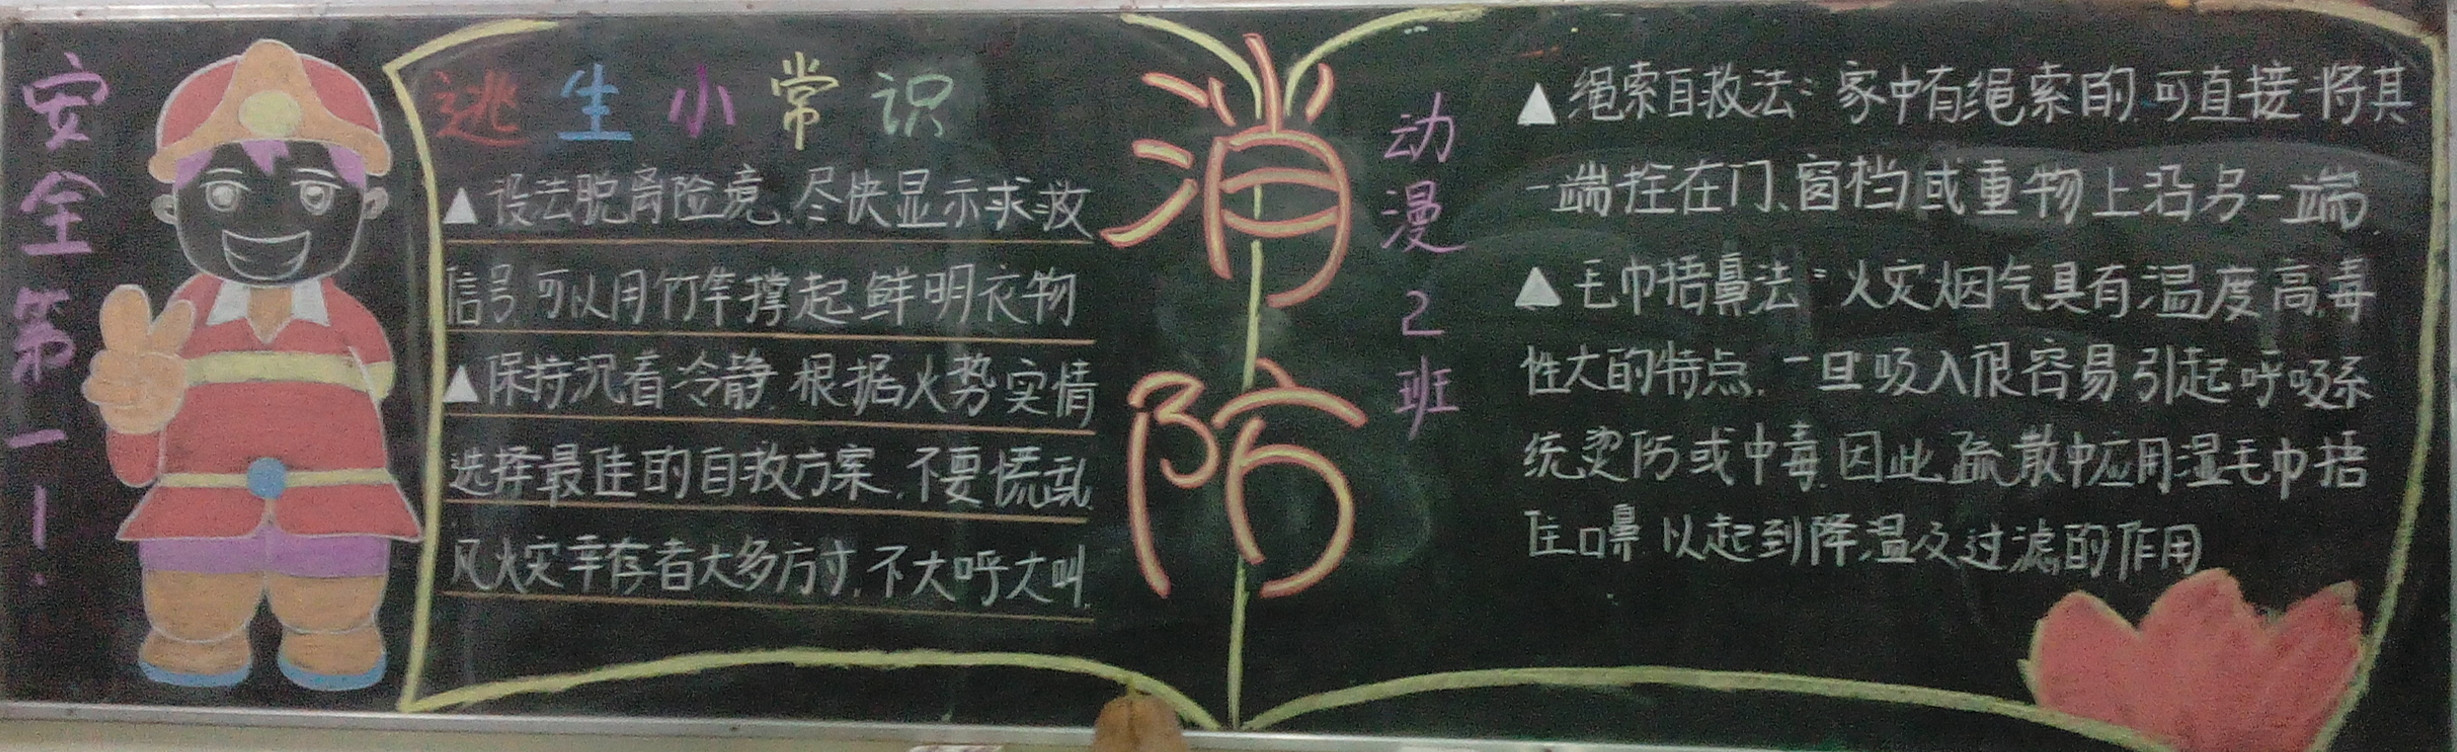 安全第一！
逃生小常识
▲设法脱离险境,尽快显示求救
信号可以用竹竿撑起鲜明衣物
▲保持沉着冷静,根据火势实情
选择最佳的自救方案,不要慌乱,
凡火灾幸存者大多方寸,不大呼大叫,
消防
动漫2班
▲绳索自救法：家中有绳索的,可直接将其
一端拴在门、窗档或重物上沿另一端
▲毛巾捂鼻法：火灾烟气具有温度高、毒
性大的特点,一旦吸入很容易引起呼吸系
统烫伤或中毒,因此疏散中应用湿毛巾捂
住口鼻以起到降温及过滤的作用